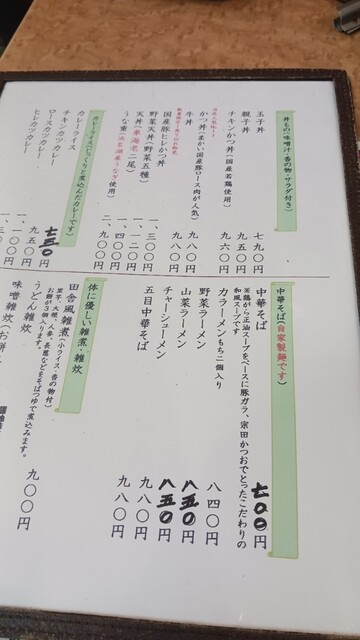 丼もの(味噌汁・香の物・サラダ付き)
玉子丼 七九〇円
親子丼 九五〇円
チキンかつ丼(国産若鶏使用) 九六〇円
かつ丼(柔かい国産豚ロース肉が人気) 九八〇円
牛丼 九八〇円
国産豚ヒレかつ丼 一、三〇〇円
野菜天丼(野菜五種) 一、一二〇円
天丼(車海老二尾) 一、四〇〇円
うな重(浜名湖産うなぎ使用) 二、九〇〇円
カレーライス(じっくりと煮込んだカレーです)
カレーライス 七五〇円
チキンカツカレー 九五〇円
ロースカツカレー 一、一〇〇円
ヒレカツカレー
中華そば(自家製麺です)
中華そば 七〇〇円
※鶏がら正油スープをベースに豚ガラ、宗田かつおでとったこだわりの
和風スープです
力ラーメンもち二個入り 八四〇円
野菜ラーメン 八五〇円
山菜ラーメン 八五〇円
チャーシューメン 九八〇円
五目中華そば 九八〇円
体に優しい雑煮・雑炊
田舎風雑煮(小ライス・香の物付) 九〇〇円
里芋、大根、人参、長葱などをそばつゆで煮込みます。
お餅が3個入ります。
うどん雑炊
味噌雑炊(お餅